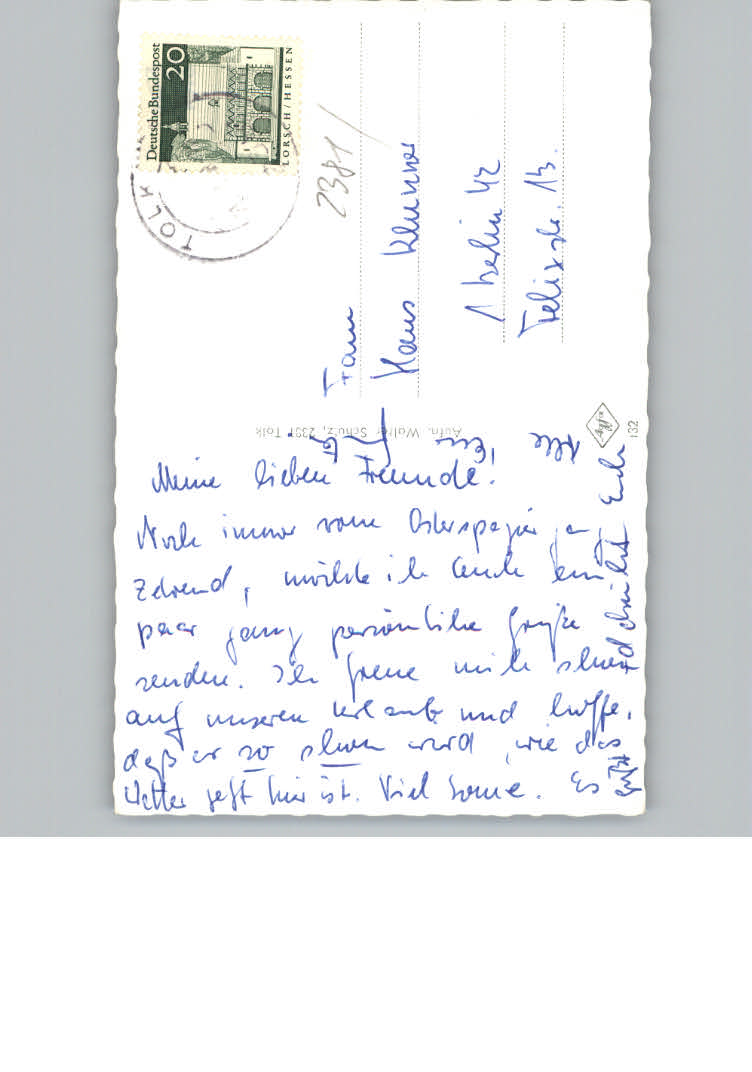 Deutsche Bundespost
20
LORSCH/HESSEN
TOLK
2381/
Hans
1 Berlin 42
Felixstr. 13.
Aufn. Walter Schulz, 2381 Tolk
Agfa
132
Meine lieben Freunde!
Noch immer vom Osterspazier
Zehrend, möchte ich Euch ein
paar ganz persönliche Grüße
senden. Ich freue mich schon
auf unseren Urlaub und hoffe,
daß er so schön wird, wie das
Wetter jetzt hier ist. Viel Sonne. Es
Euch